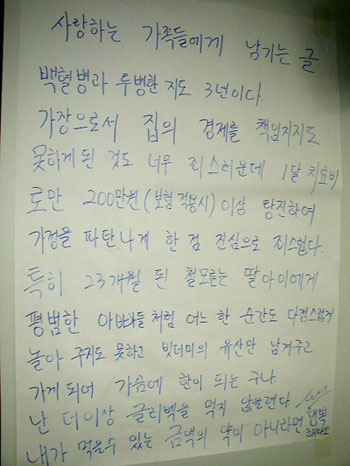 사랑하는 가족들에게 남기는 글
백혈병과 투병한 지도 3년이다.
가장으로서 집의 경제를 책임지지도
못하게 된 것도 너무 죄스러운데 1달 치료비
로만 200만원(보험 적용시)이상 탕진하여
가정을 파탄나게 한 점 진심으로 죄스럽다.
특히 23개월 된 철모르는 딸아이에게
평범한 아빠들 처럼 어느 한 순간도 다정스럽게
놀아 주지도 못하고 빚더미의 유산만 남겨주고
가게 되어 가슴에 한이 되는 구나.
난 더이상 글리벡을 먹지 않을련다.
내가 먹을수 있는 금액의 약이 아니라면